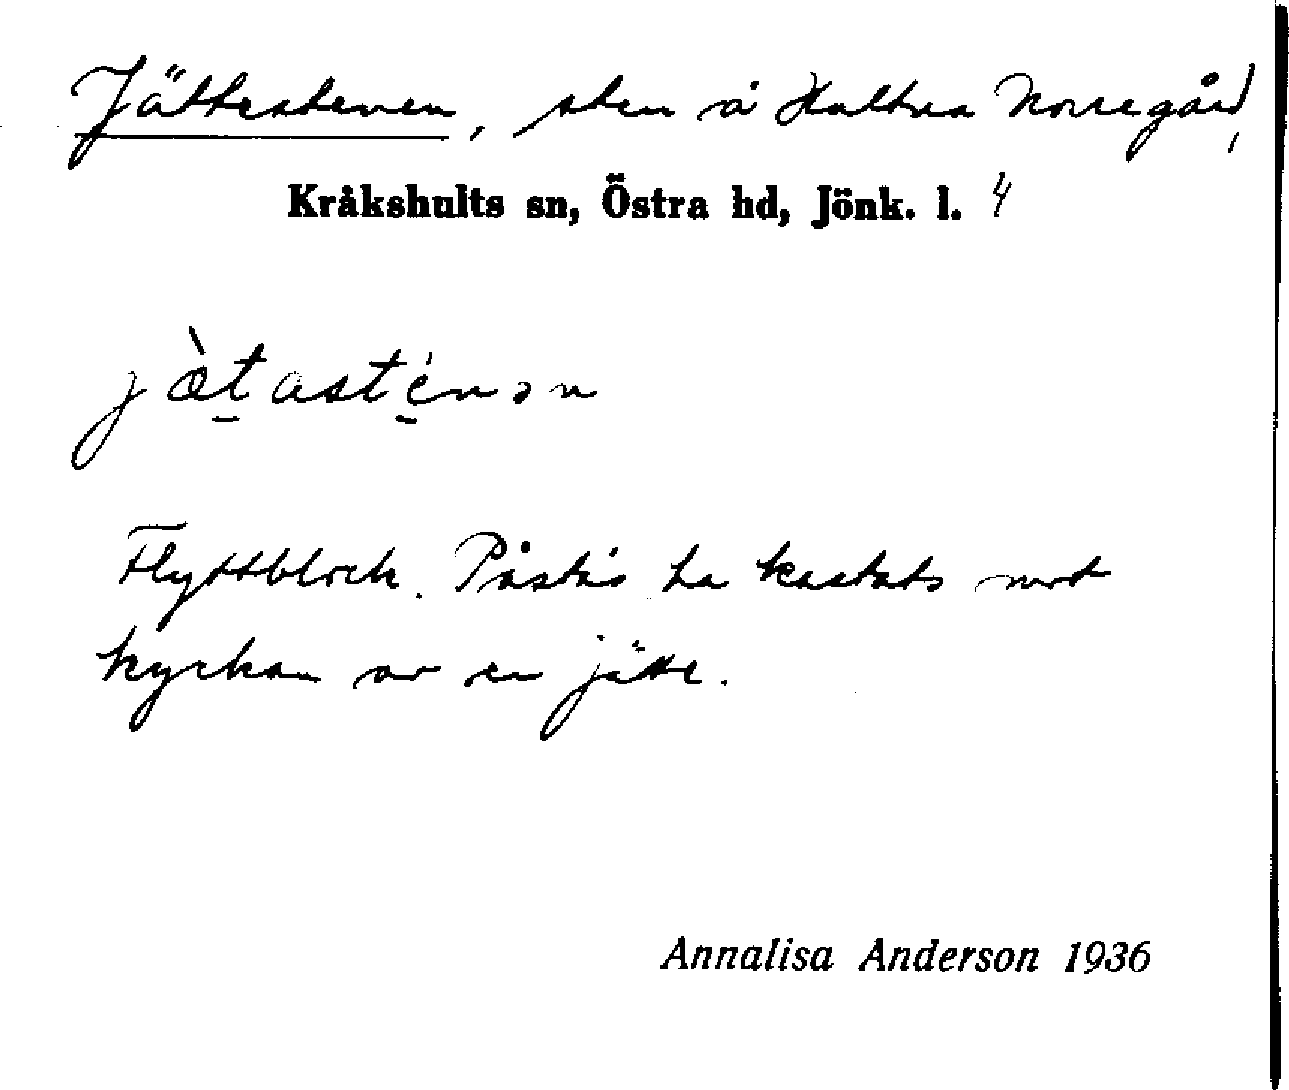 Jättestenen, sten å Hultna Norregård,
Kråkshults sn, Östra hd, Jönk. l. 4
jæ̀tasténən
Flyttblock. Påstås ha kastats mot
kyrkan av en jätte.
Annalisa Anderson 1936